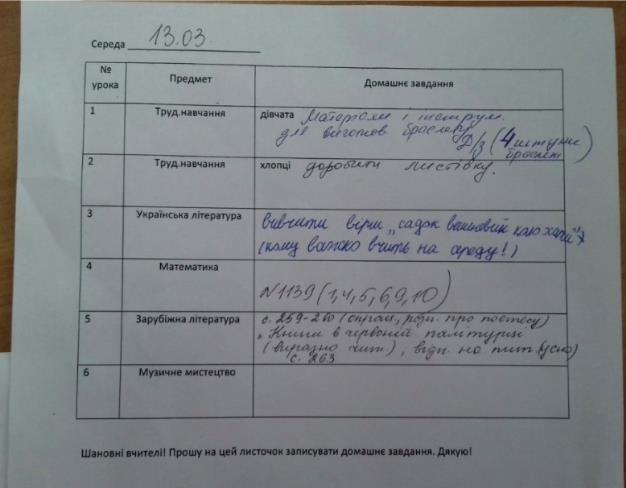 Середа 13.03
№ урока Предмет Домашнє завдання
1 Труд.навчання дівчата Матеріали і інструм.
для виготов браслету
Д/з (4 штуки браслет)
2 Труд.навчання хлопці доробити листівку.
3 Українська література вивчити вірш „садок вишневий коло хати"
(кому важко вчить на середу!)
4 Математика №1139 (1,4,5,6,9,10)
5 Зарубіжна література с. 259-260 (справа, розп. про поетесу)
„Книги в червоній палітурці
(виразно чит.), відп. на пит. (усно)
с. 263
6 Музичне мистецтво
Шановні вчителі! Прошу на цей листочок записувати домашнє завдання. Дякую!